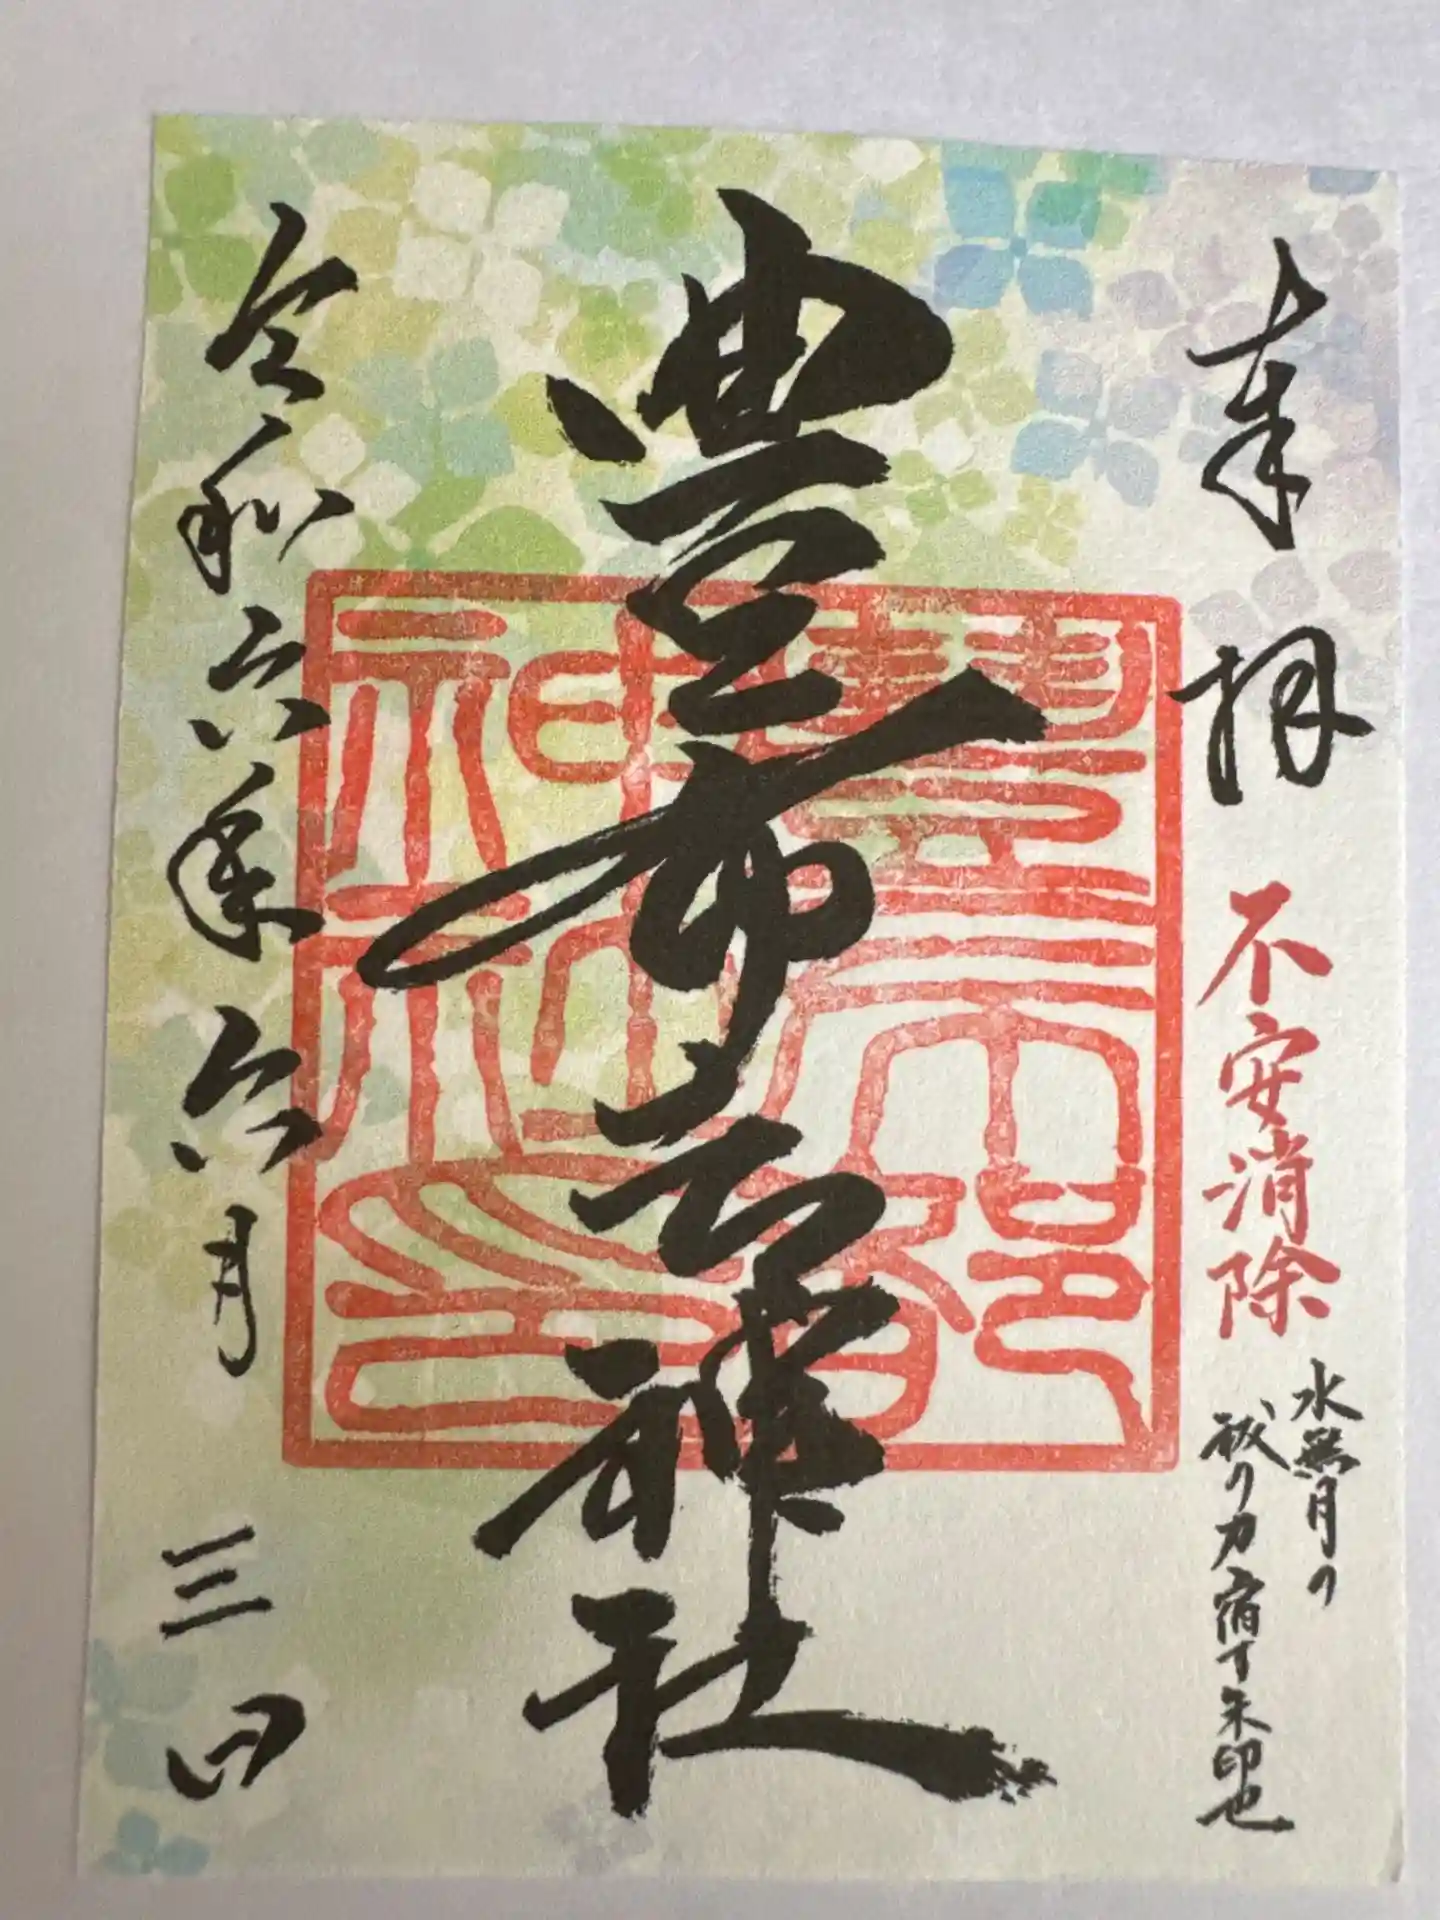 奉拝
不安消除
水無月の
祓の力宿す朱印也
豊布都神社
令和六年六月三日